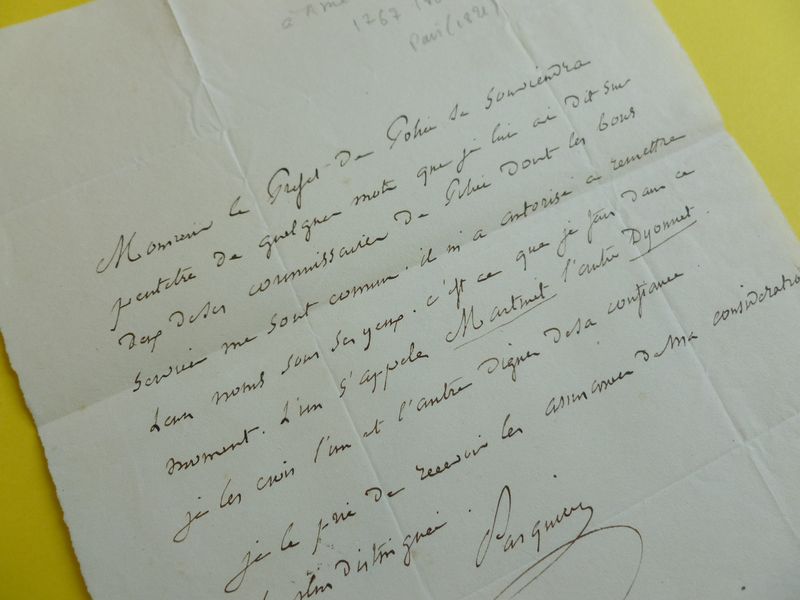 à
1767
Paris (1821)
Monsieur le Préfet de Police se souviendra
peutetre de quelques mots que je lui ai dit sur
deux de ses commissaires de Police dont les bons
services me sont connus. il m'a autorisé à remettre
leurs noms sous ses yeux. c'est ce que je fais dans ce
moment. L'un s'appele Martinet l'autre Dyonnet.
je les crois l'un et l'autre dignes de sa confiance.
je le prie de recevoir les assurances de ma consideration
la plus distinguée.
Pasquier